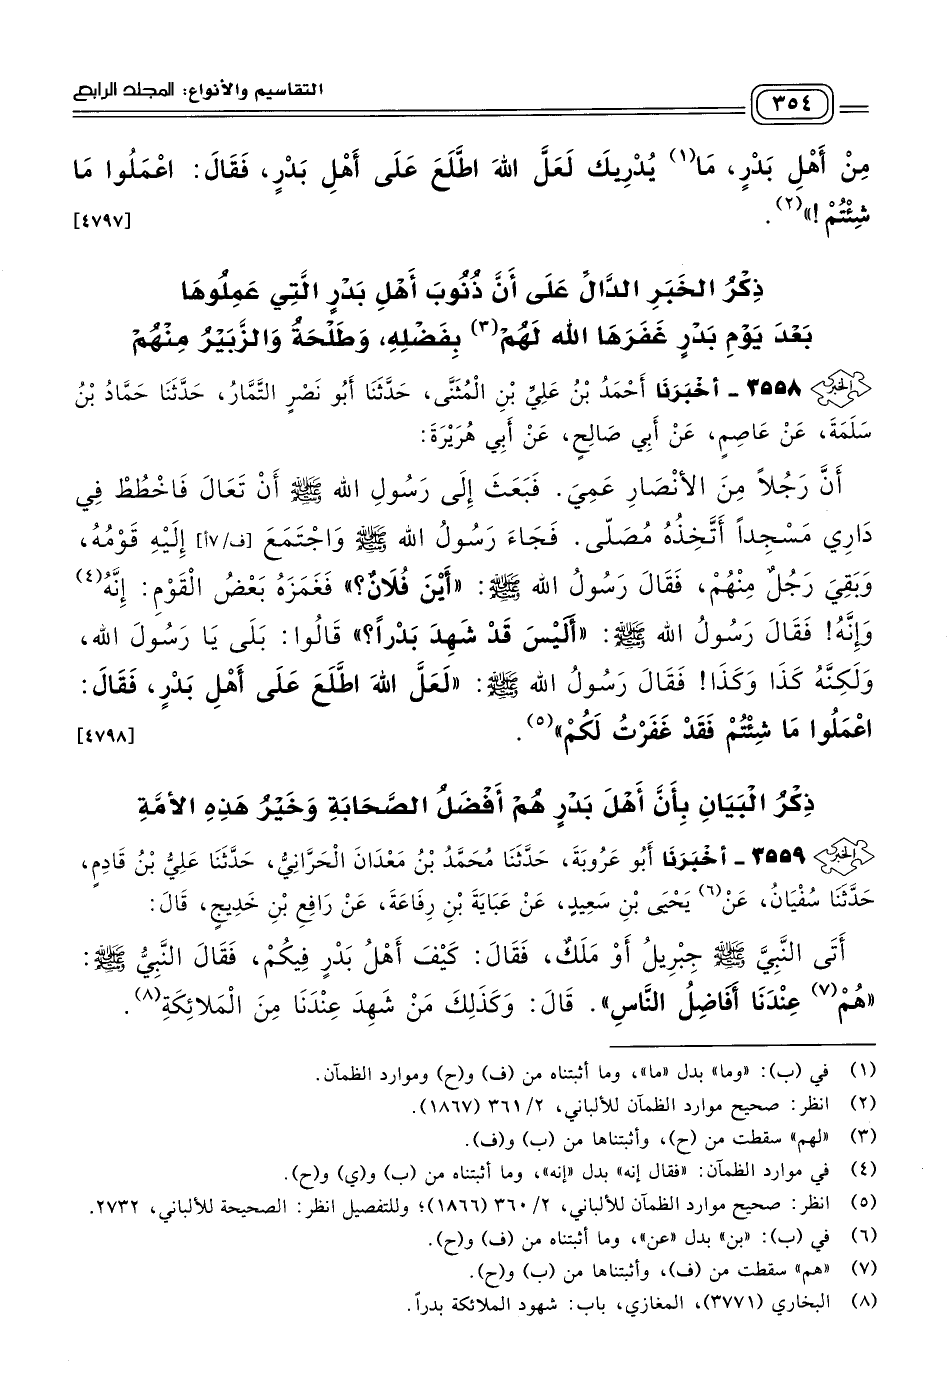 التقاسيم والأنواع: المجلد الرابع
٣٥٤
مِنْ أَهْلِ بَدْرٍ، مَا(١) يُدْرِيكَ لَعَلَّ اللهَ اطَّلَعَ عَلَى أَهْلِ بَدْرٍ، فَقَالَ: اعْمَلُوا مَا
شِئْتُمْ!»(٢). [٤٧٩٧]
ذِكْرُ الخَبَرِ الدَّالِّ عَلَى أَنَّ ذُنُوبَ أَهْلِ بَدْرٍ الَّتِي عَمِلُوهَا
بَعْدَ يَوْمِ بَدْرٍ غَفَرَهَا الله لَهُمْ(٣) بِفَضْلِهِ، وَطَلْحَةُ وَالزُّبَيْرُ مِنْهُمْ
الخبر ٣٥٥٨ ـ أَخْبَرَنَا أَحْمَدُ بْنُ عَلِيِّ بْنِ الْمُثَنَّى، حَدَّثَنَا أَبُو نَصْرٍ التَّمَّارُ، حَدَّثَنَا حَمَّادُ بْنُ
سَلَمَةَ، عَنْ عَاصِمٍ، عَنْ أَبِي صَالِحٍ، عَنْ أَبِي هُرَيْرَةَ:
أَنَّ رَجُلاً مِنَ الأَنْصَارِ عَمِيَ. فَبَعَثَ إِلَى رَسُولِ الله ﷺ أَنْ تَعَالَ فَاخْطُطْ فِي
دَارِي مَسْجِداً أَتَّخِذُهُ مُصَلّى. فَجَاءَ رَسُولُ الله ﷺ وَاجْتَمَعَ [ف/٧أ] إِلَيْهِ قَوْمُهُ،
وَبَقِيَ رَجُلٌ مِنْهُمْ، فَقَالَ رَسُولُ الله ﷺ: «أَيْنَ فُلَانٌ؟» فَغَمَزَهُ بَعْضُ الْقَوْمِ: إِنَّهُ(٤)
وَإِنَّهُ! فَقَالَ رَسُولُ الله ﷺ: «أَلَيْسَ قَدْ شَهِدَ بَدْراً؟» قَالُوا: بَلَى يَا رَسُولَ الله،
وَلَكِنَّهُ كَذَا وَكَذَا! فَقَالَ رَسُولُ الله ﷺ: «لَعَلَّ اللهَ اطَّلَعَ عَلَى أَهْلِ بَدْرٍ، فَقَالَ:
اعْمَلُوا مَا شِئْتُمْ فَقَدْ غَفَرْتُ لَكُمْ»(٥). [٤٧٩٨]
ذِكْرُ الْبَيَانِ بِأَنَّ أَهْلَ بَدْرٍ هُمْ أَفْضَلُ الصَّحَابَةِ وَخَيْرُ هَذِهِ الأُمَّةِ
الخبر ٣٥٥٩ ـ أَخْبَرَنَا أَبُو عَرُوبَةَ، حَدَّثَنَا مُحَمَّدُ بْنُ مَعْدَانَ الْحَرَّانِيُّ، حَدَّثَنَا عَلِيُّ بْنُ قَادِمٍ،
حَدَّثَنَا سُفْيَانُ، عَنْ(٦) يَحْيَى بْنِ سَعِيدٍ، عَنْ عَبَايَةَ بْنِ رِفَاعَةَ، عَنْ رَافِعِ بْنِ خَدِيجٍ، قَالَ:
أَتَى النَّبِيَّ ﷺ جِبْرِيلُ أَوْ مَلَكٌ، فَقَالَ: كَيْفَ أَهْلُ بَدْرٍ فِيكُمْ، فَقَالَ النَّبِيُّ ﷺ:
«هُمْ(٧) عِنْدَنَا أَفَاضِلُ النَّاسِ». قَالَ: وَكَذَلِكَ مَنْ شَهِدَ عِنْدَنَا مِنَ الْمَلائِكَةِ(٨).
(١) في (ب): «وما» بدل «ما»، وما أثبتناه من (ف) و(ح) وموارد الظمآن.
(٢) انظر: صحيح موارد الظمآن للألباني، ٢/ ٣٦١ (١٨٦٧).
(٣) «لهم» سقطت من (ح)، وأثبتناها من (ب) و(ف).
(٤) في موارد الظمآن: «فقال إنه» بدل «إنه»، وما أثبتناه من (ب) و(ي) و(ح).
(٥) انظر: صحيح موارد الظمآن للألباني، ٢/ ٣٦٠ (١٨٦٦)؛ وللتفصيل انظر: الصحيحة للألباني، ٢٧٣٢.
(٦) في (ب): «بن» بدل «عن»، وما أثبتناه من (ف) و(ح).
(٧) «هم» سقطت من (ف)، وأثبتناها من (ب) و(ح).
(٨) البخاري (٣٧٧١)، المغازي، باب: شهود الملائكة بدراً.